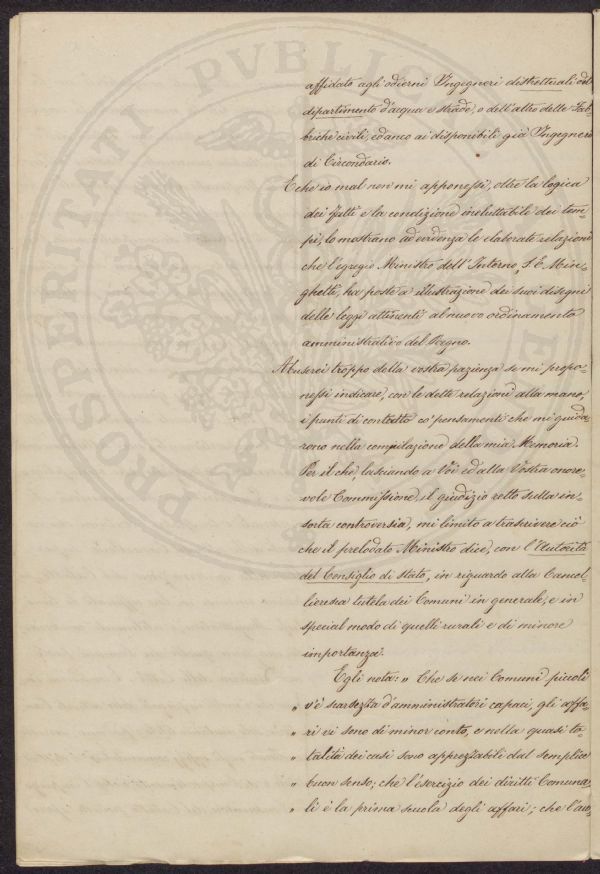 affidato agli odierni Ingegneri distrettuali del
dipartimento d'acqua e strade, o dell'altro delle Fab=
briche civili, ed anco ai disponibili già Ingegneri
di Circondario.
E che io mal non mi apponessi, oltre la logica
dei fatti e la condizione ineluttabile dei tem=
pi, lo mostrano ad evidenza le elaborate relazioni
che l'egregio Ministro dell'Interno, S. E. Min=
ghetti, ha poste a illustrazione dei suoi disegni
delle leggi attinenti al nuovo ordinamento
amministrativo del Regno.
Abuserei troppo della vostra pazienza se mi propo=
nessi indicare, con le dette relazioni alla mano,
i punti di contatto co' pensamenti che mi guida=
rono nella compilazione della mia Memoria.
Per il che, lasciando a Voi ed alla Vostra onore=
vole Commissione, il giudizio retto sulla in=
sorta controversia, mi limito a trascrivere ciò
che il prelodato Ministro dice, con l'Autorità
del Consiglio di Stato, in riguardo alla Cancel=
lieresca tutela dei Comuni in generale, e in
special modo di quelli rurali e di minore
importanza.
Egli nota: " Che se nei Comuni piccoli
" v'è scarsezza d'amministratori capaci, gli affa=
" ri vi sono di minor conto, e nella quasi to=
" talità dei casi sono apprezzabili dal semplice
" buon senso; che l'esercizio dei diritti Comuna=
" li è la prima scuola degli affari; che l'au=
PROSPERITATI PVBLIC